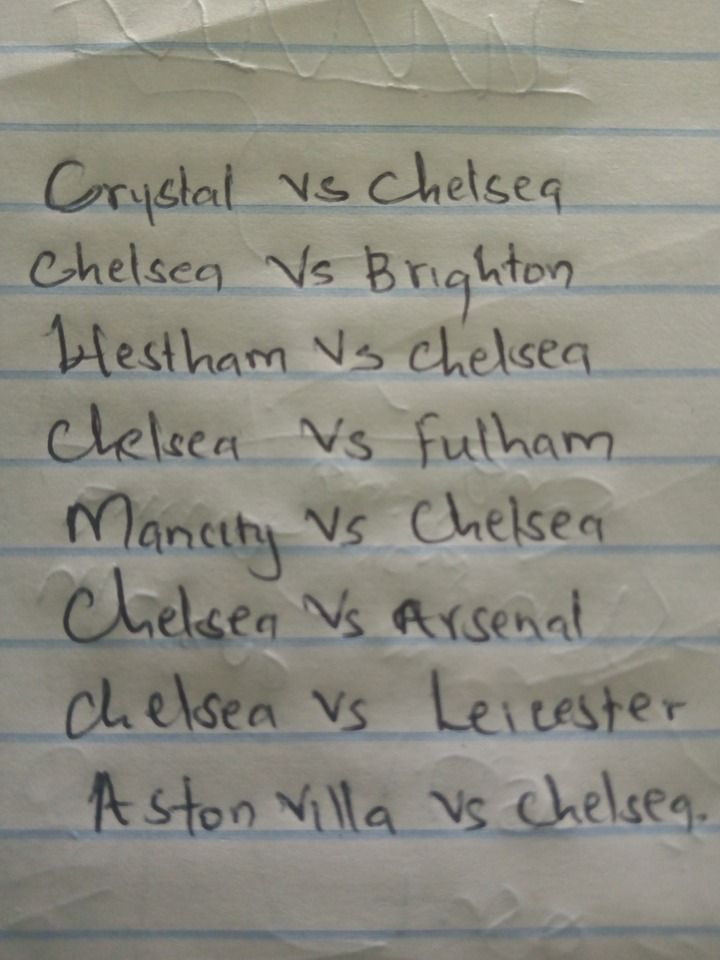 Crystal vs Chelsea
Chelsea Vs Brighton
Westham Vs Chelsea
Chelsea Vs Fulham
Mancity Vs Chelsea
Chelsea Vs Arsenal
Chelsea vs Leicester
Aston Villa vs Chelsea.